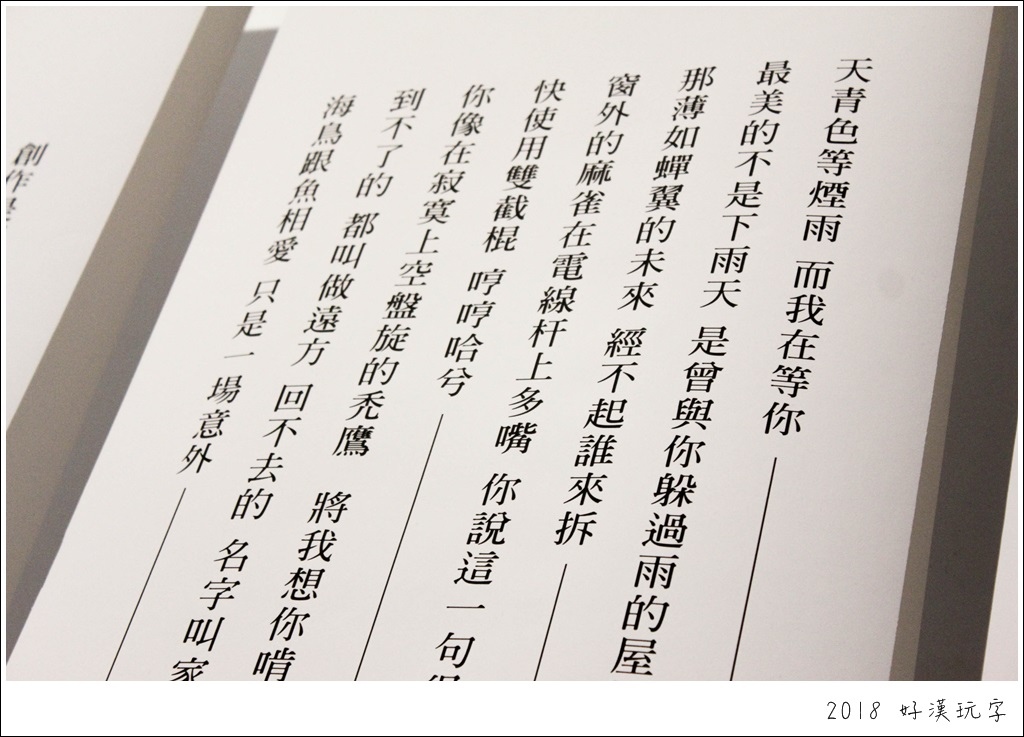 天青色等煙雨 而我在等你
最美的不是下雨天 是曾與你躲過雨的屋
那薄如蟬翼的未來 經不起誰來拆
窗外的麻雀在電線杆上多嘴 你說這一句
快使用雙截棍 哼哼哈兮
你像在寂寞上空盤旋的禿鷹 將我想你啃
到不了的 都叫做遠方 回不去的 名字叫家
海鳥跟魚相愛 只是一場意外
創作
2018 好漢玩字